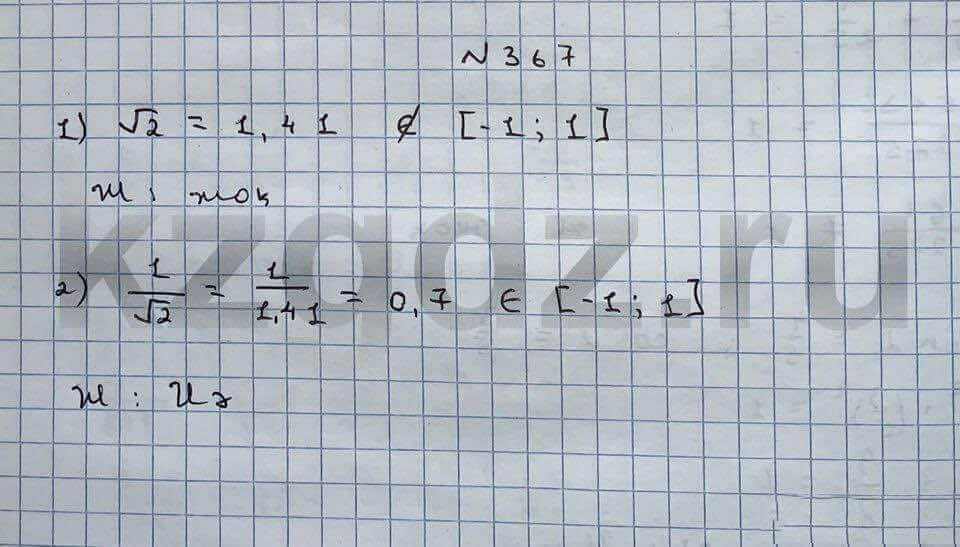 N 367
1) √2 = 1,41 ∉ [-1; 1]
ж: жоқ
2) 1/√2 = 1/1,41 = 0,7 ∈ [-1; 1]
ж: Иә
kzgdz.ru